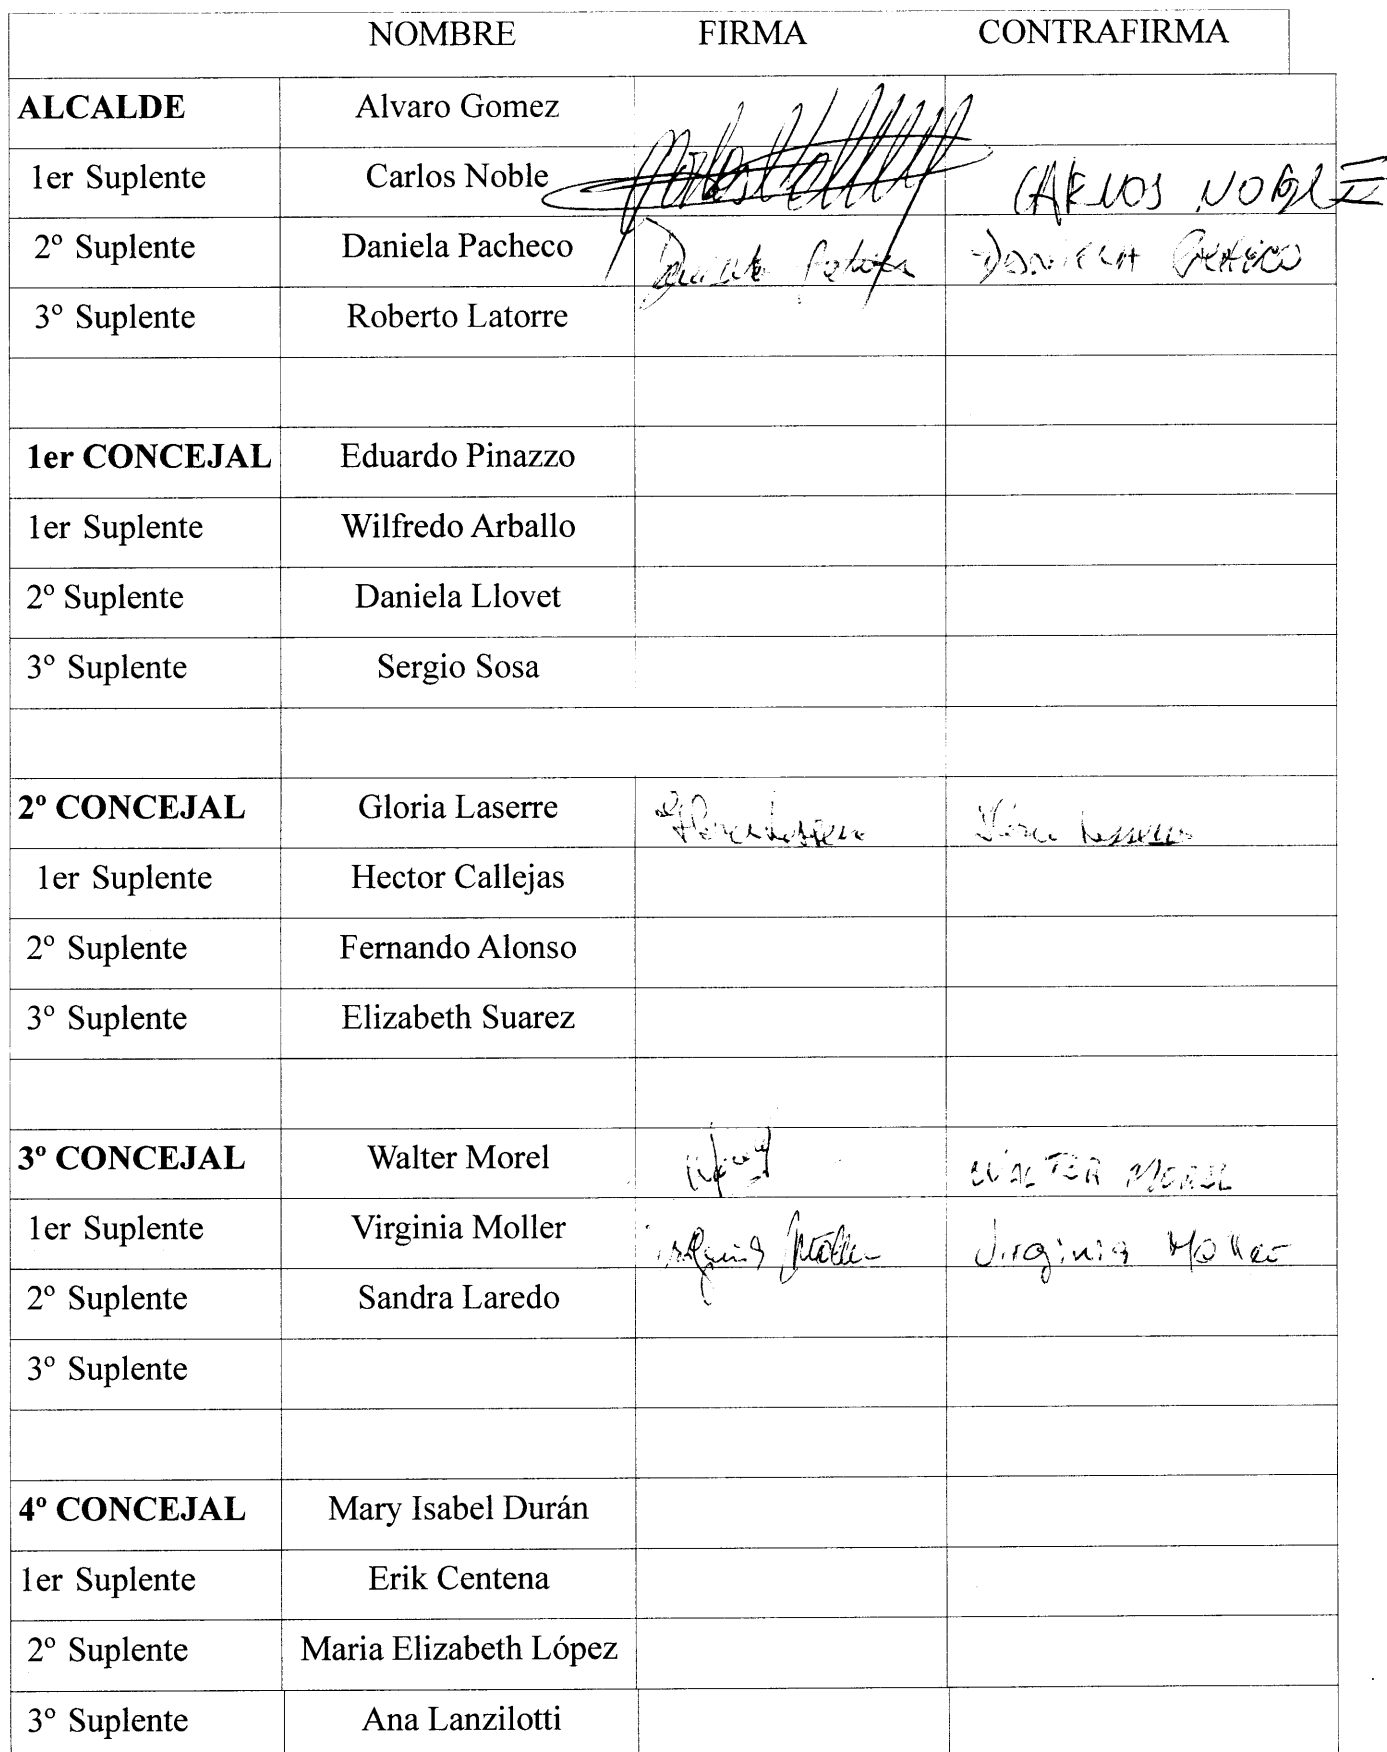 NOMBRE FIRMA CONTRAFIRMA
ALCALDE Alvaro Gomez
1er Suplente Carlos Noble CARLOS NOBLE
2º Suplente Daniela Pacheco Daniela Pacheco DANIELA PACHECO
3º Suplente Roberto Latorre
1er CONCEJAL Eduardo Pinazzo
1er Suplente Wilfredo Arballo
2º Suplente Daniela Llovet
3º Suplente Sergio Sosa
2º CONCEJAL Gloria Laserre
1er Suplente Hector Callejas
2º Suplente Fernando Alonso
3º Suplente Elizabeth Suarez
3º CONCEJAL Walter Morel WALTER MOREL
1er Suplente Virginia Moller Virginia Moller Virginia Moller
2º Suplente Sandra Laredo
3º Suplente
4º CONCEJAL Mary Isabel Durán
1er Suplente Erik Centena
2º Suplente Maria Elizabeth López
3º Suplente Ana Lanzilotti